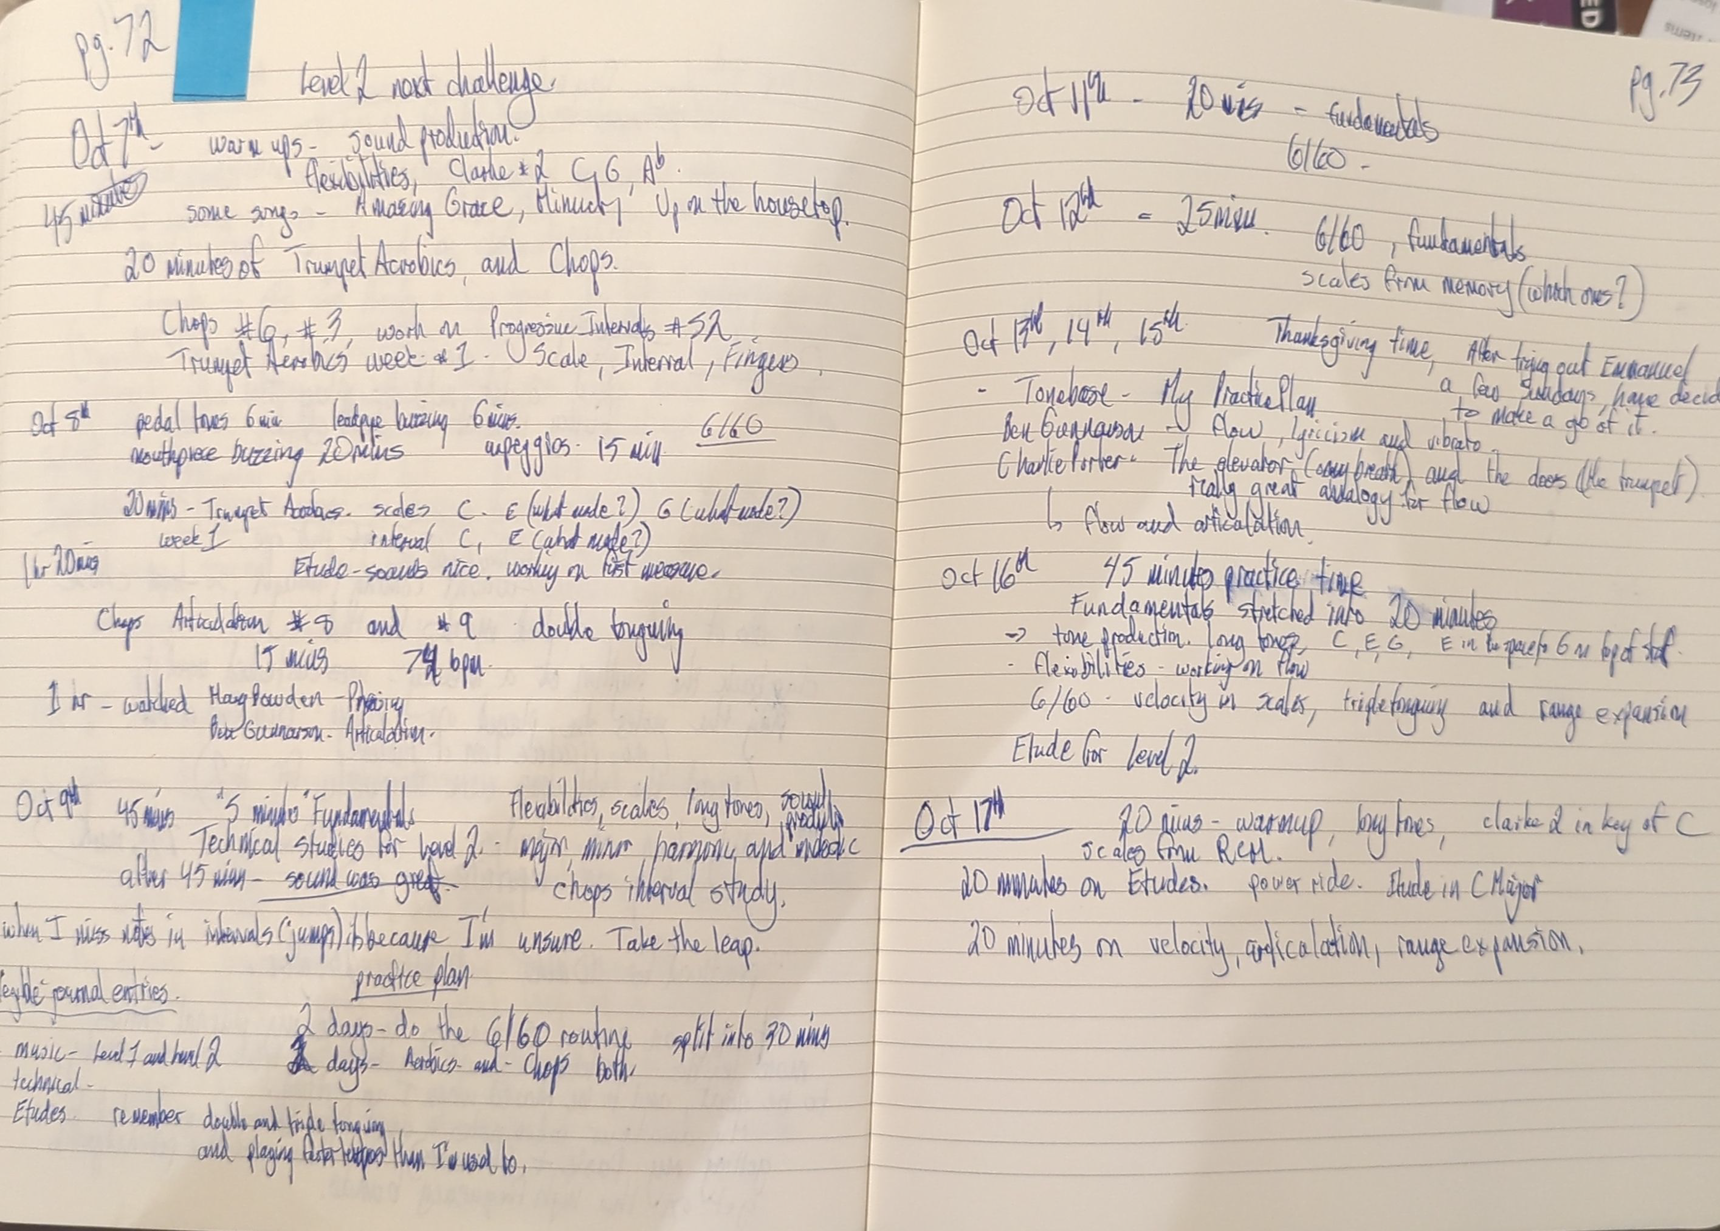 pg. 72
Level 2 next challenge
Oct 7th - warm ups - sound production.
flexibilities, Clarke #2 C, G, Ab.
45 minutes some songs - Amazing Grace, Up on the housetop.
20 minutes of Trumpet Aerobics, and Chops.
Chops #6, #3, work on Progressive Intervals #52
Trumpet Aerobics week #1 - Scale, Interval, Fingers.
Oct 8th pedal tones 6 min leadpipe buzzing 6 mins. 6/60
mouthpiece buzzing 20 mins arpeggios - 15 min
20 mins - Trumpet Aerobics - scales C - E (what mode?) G (what mode?)
week 1 interval C, E (what mode?)
1 hr 20 mins Etude - sounds nice. working on first measure.
Chops Articulation #8 and #9 double tonguing
15 mins bpm
1 hr - watched Bowden - Phrasing
Gunnarson - Articulation.
Oct 9th 45 mins "5 minute" Fundamentals Flexibilities, scales, long tones, sound
Technical studies for Level 2 - major, minor, harmonic and melodic
after 45 min - sound was great. chops interval study.
when I miss notes in intervals (jumps) it's because I'm unsure. Take the leap.
practice plan
journal entries.
2 days - do the 6/60 routine split into 30 mins
music - Level 1 and Level 2 days - Aerobics - and - Chops both.
technical -
Etudes remember double and triple tonguing
and playing faster tempos than I'm used to.
pg. 73
Oct 11th - 20 mins - fundamentals
6/60 -
Oct 12th - 25 mins. 6/60, fundamentals
scales from memory (which ones?)
Oct 13th, 14th, 15th. Thanksgiving time, After trying out Emmanuel
a few Sundays, have decid
to make a go of it.
- Tonebase - My Practice Plan
Ben Gunnarson - flow, lyricism and vibrato
Charlie Porter - The elevator, (breath) and the doors (the trumpet)
really great analogy for flow
↳ flow and articulation.
Oct 16th 45 minutes practice time
Fundamentals stretched into 20 minutes
-> tone production. long tones, C, E, G, E in the space to G on top of staff.
- flexibilities - working on flow
6/60 - velocity in scales, triple tonguing and range expansion
Etude for Level 2.
Oct 17th 20 mins - warmup, long tones, clarke 2 in key of C
scales from RCM.
20 minutes on Etudes. power ride. Etude in C Major
20 minutes on velocity, articulation, range expansion.
ED